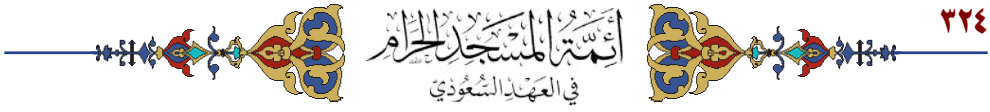 ٣٢٤
أَئِمَّةُ المَسْجِدِ الحَرَامِ
في العَهْدِ السُّعُوْدِيّ